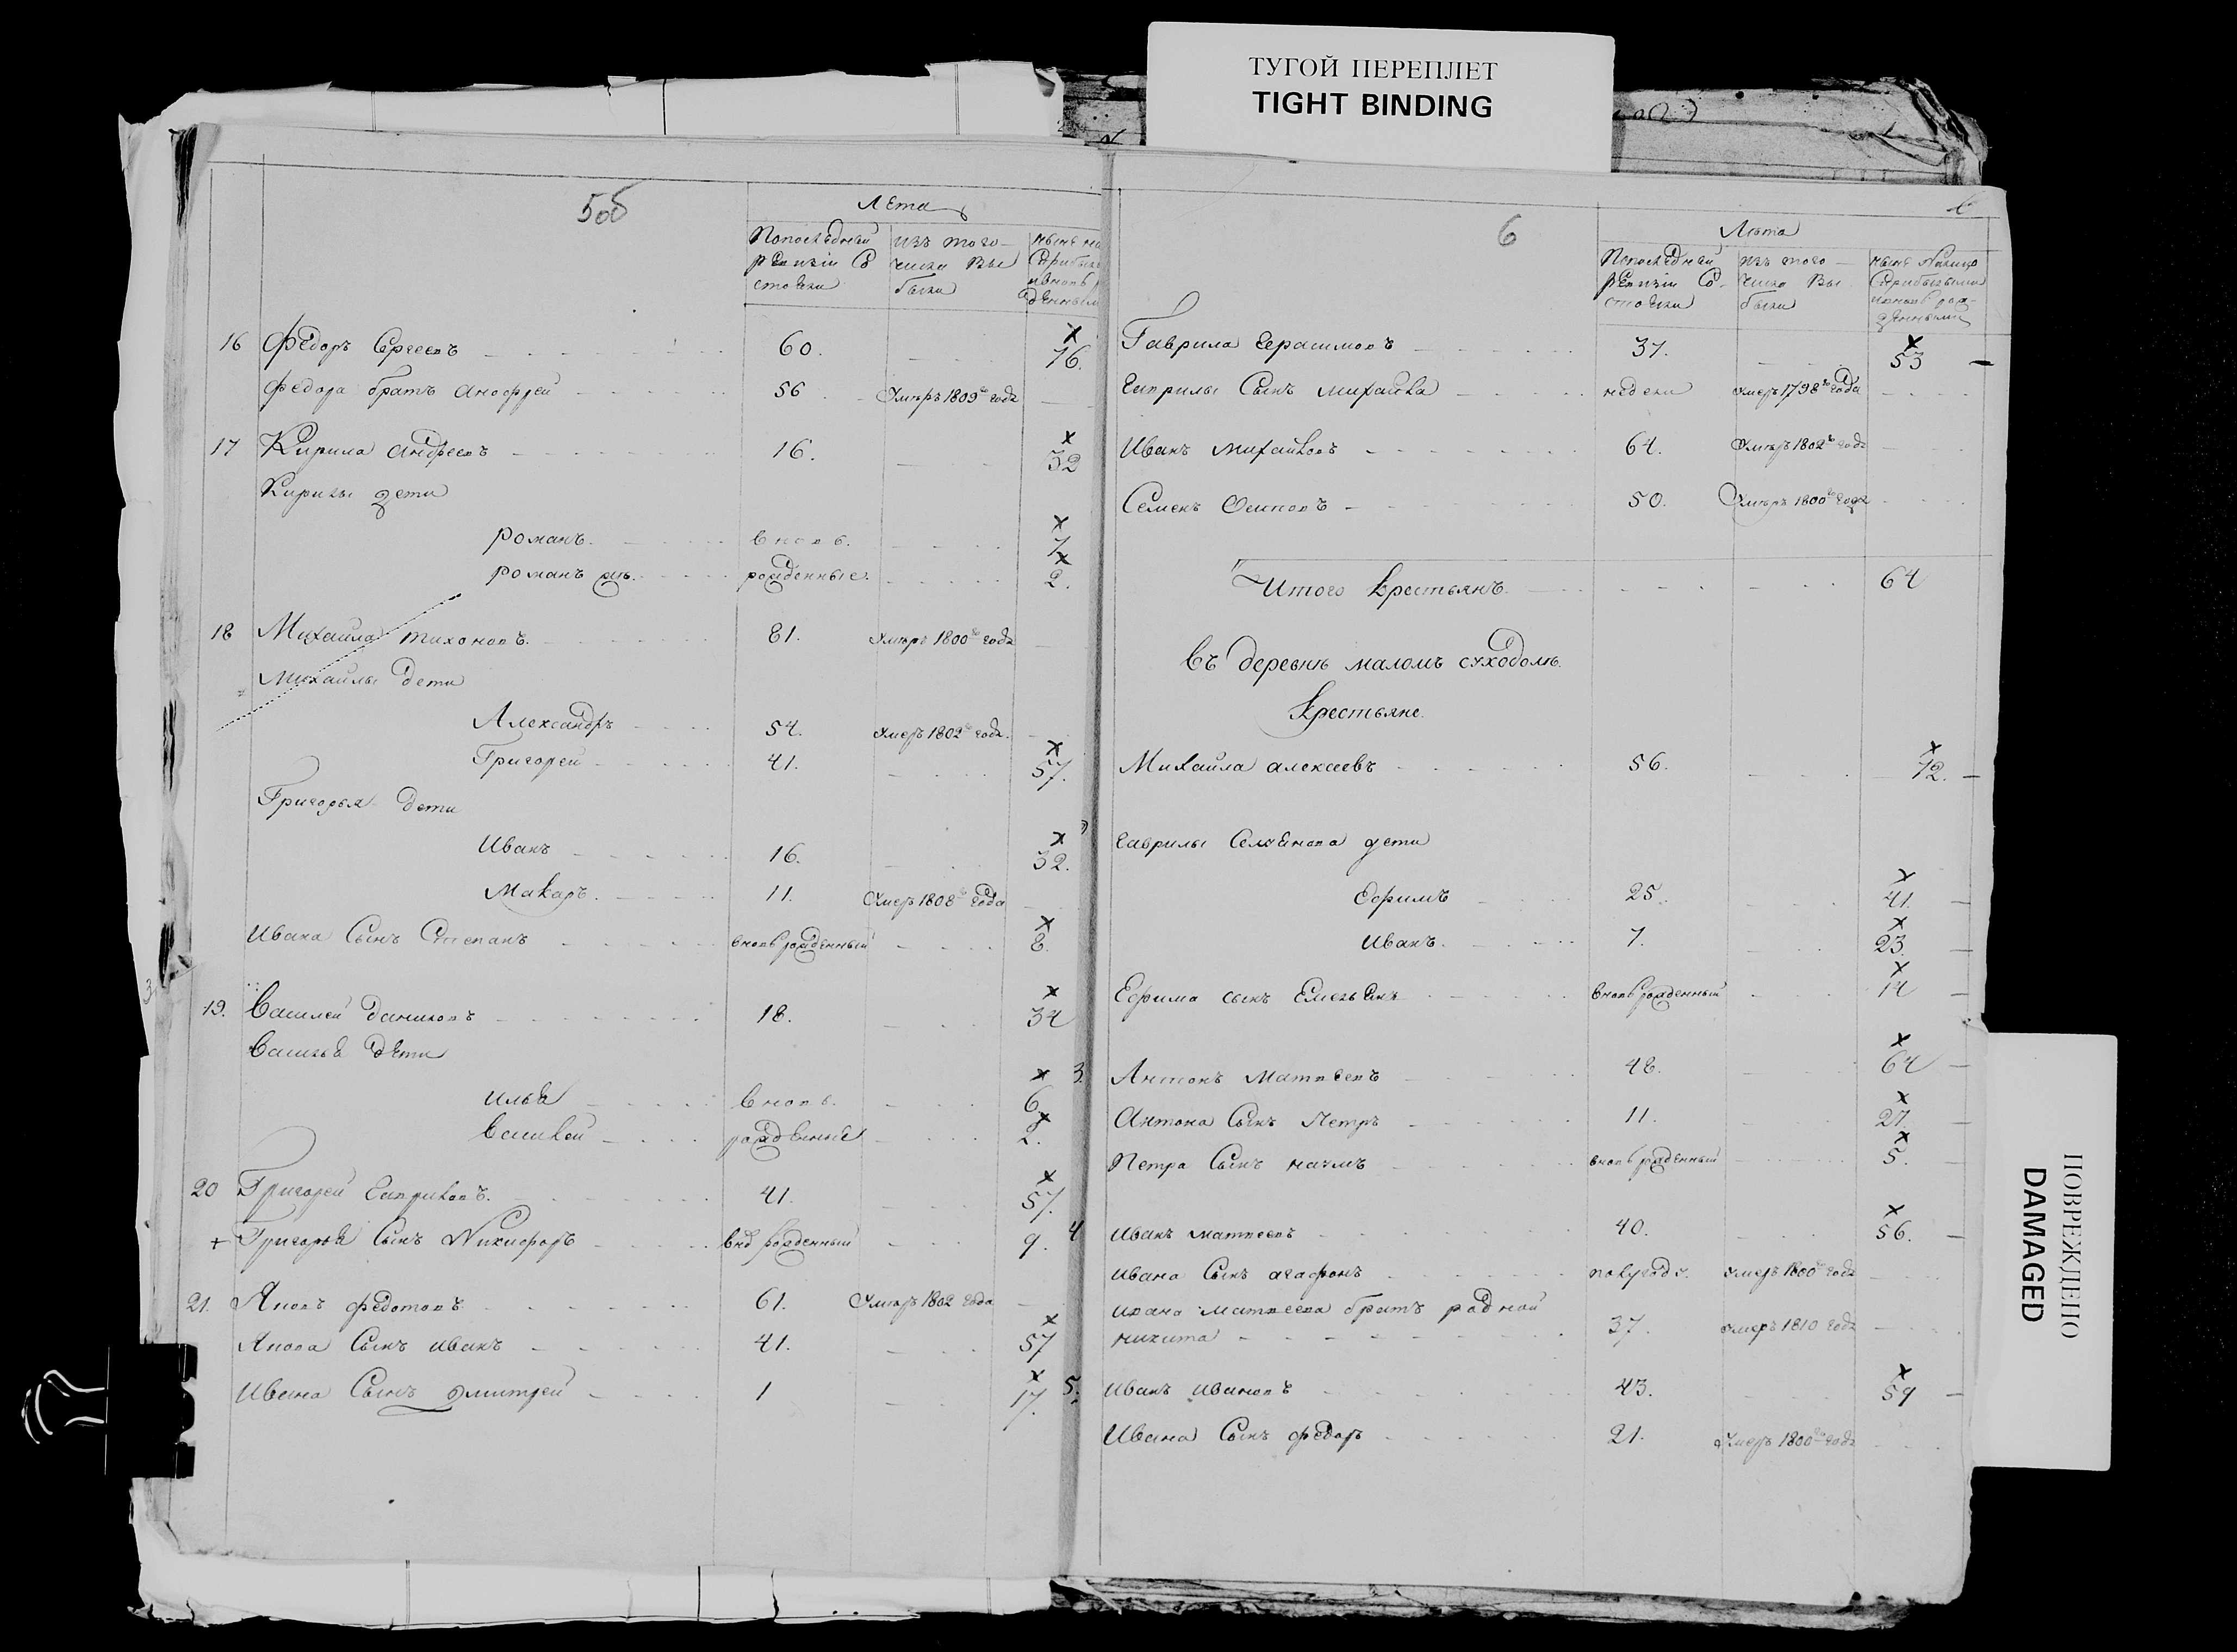 ТУГОЙ ПЕРЕПЛЕТ
TIGHT BINDING
5об
Лета
Попоследней ревизіи Состояли
изъ того числа Выбыли
16 Федоръ Сергеевъ 60. 76.
Федора братъ Анофрей 56 Умеръ 1809го года
17 Кирила Андреевъ 16. 32
Кирилы дети
романъ. вновь. 7
романъ рожденные. 2.
18 Михайла тихоновъ. 81. Умеръ 1800го года
Михайлы дети
Александръ 54. Умеръ 1802го года.
Григорей 41. 57.
Григорья дети
Иванъ 16. 32.
Макаръ. 11. Умеръ 1808го года
Ивана Сынъ Степанъ вновь рожденный 8.
19. Василей даниловъ 18. 34
Василья дети
Илья вновь. 6
Василей рожденные 2.
20 Григорей Гавриловъ. 41. 57.
+ Григорья Сынъ Никифоръ рожденный 9.
21. Яковъ федотовъ 61. Умеръ 1802 года
Якова Сынъ иванъ 41. 57
Ивана Сынъ дмитрей 1 17.
6
Лета
Попоследней ревизіи Состояли
изъ того числа Выбыли
ныне налицо Сприбылыми ивновь рожденными
Гаврила Герасимовъ 37. 53
Гаврилы Сынъ михайла недели умеръ 1798го года
Иванъ михайловъ 64. Умеръ 1802го года
Семенъ Осиповъ 50. Умеръ 1800го года
Итого крестьянъ. 64
Въ деревне маломъ суходоле.
Крестьяне.
Михайла алексеевъ 56. 72.
Гаврилы Семенова дети
Ефимъ 25. 41.
Иванъ. 7. 23.
Ефима сынъ Емельянъ вновь рожденный 14
3. Антонъ Матвеевъ 48. 64
Антона Сынъ Петръ 11. 27.
Петра Сынъ наумъ вновь рожденный 5.
4 Иванъ матвеевъ 40. 56.
Ивана Сынъ агафонъ полугоду. умеръ 1800го года
ивана матвеева братъ родной
никита 37. умеръ 1810 года
5. Иванъ ивановъ 43. 59
Ивана Сынъ федоръ 21. умеръ 1800го года
ПОВРЕЖДЕНО
DAMAGED